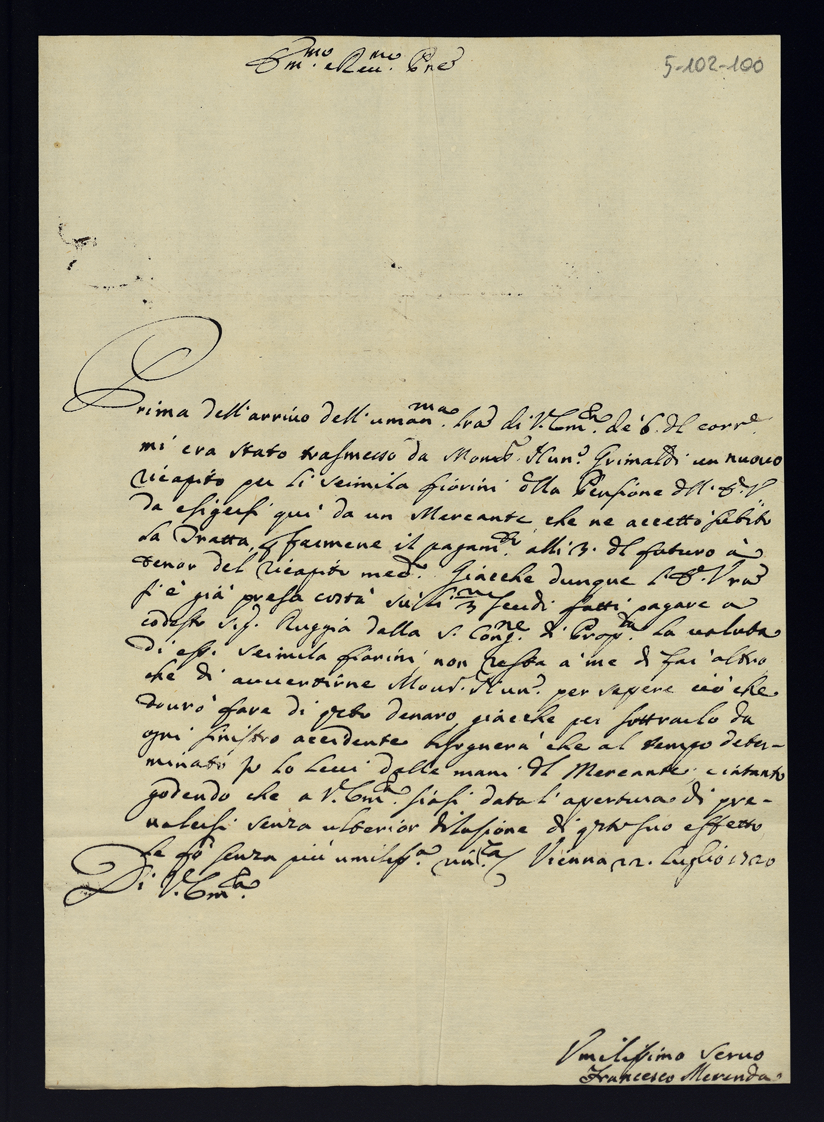 Em.mo e Reu.mo Pne
5-102-100
Prima dell'arriuo dell'uman.ma lra di V. Em.za de' 6. dl corr.e
mi era stato trasmesso da Mons.r Nun.o Grimaldi un nuouo
ricapito per li seimila fiorini della Pensione dll' E. V.
da esigersi qui da un Mercante, che ne accettò subito
la Tratta, p farmene il pagam.to alli 3. dl futuro à
tenor del ricapito med.o Giacche dunque l'E. V. ra
s'è già presa costà scudi fatti pagare a
codesto Sig. Ruggia dalla S. Cong.ne di Prop.da la ualuta
di essi seimila fiorini, non resta à me di far altro
che di auuertirne Mons.r Nun.o per sapere ciò che
dourò fare di qsto denaro, giacche per sottrarlo da
ogni sinistro accidente bisognerà che al tempo deter-
minato io lo leui dalle mani dl Mercante; e intanto
godendo che a V. Em.za siasi data l'apertura di pre-
ualersi senza ulterior dilasione di qsto suo effetto
le fò senza più umiliss.a riu.za Vienna 22. Luglio 1720
Di V. Em.za
Vmilissimo seruo
Francesco Merenda